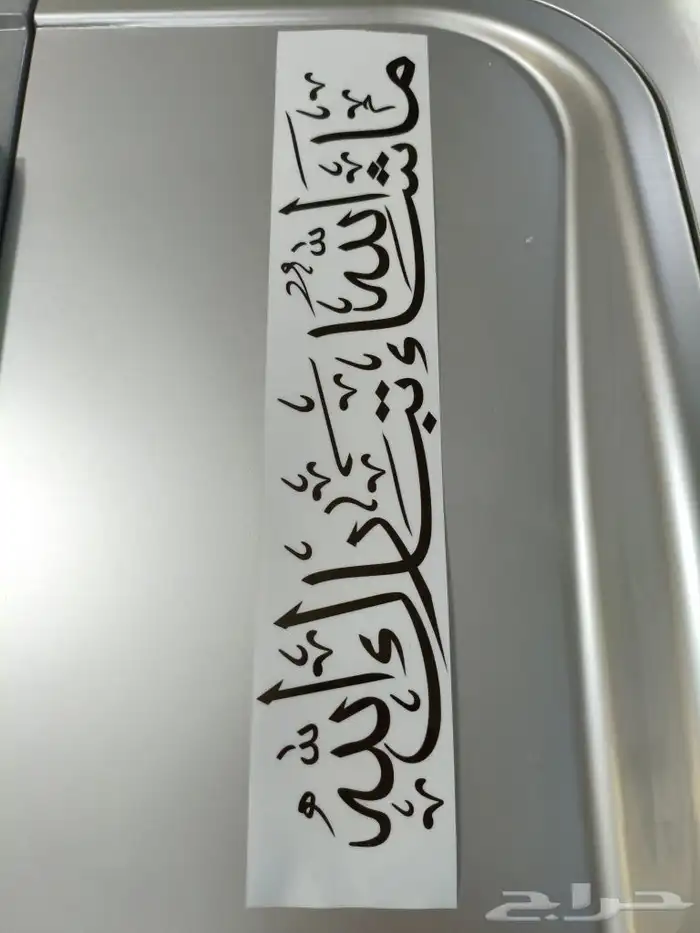 ما شاء الله تبارك الله
حراج